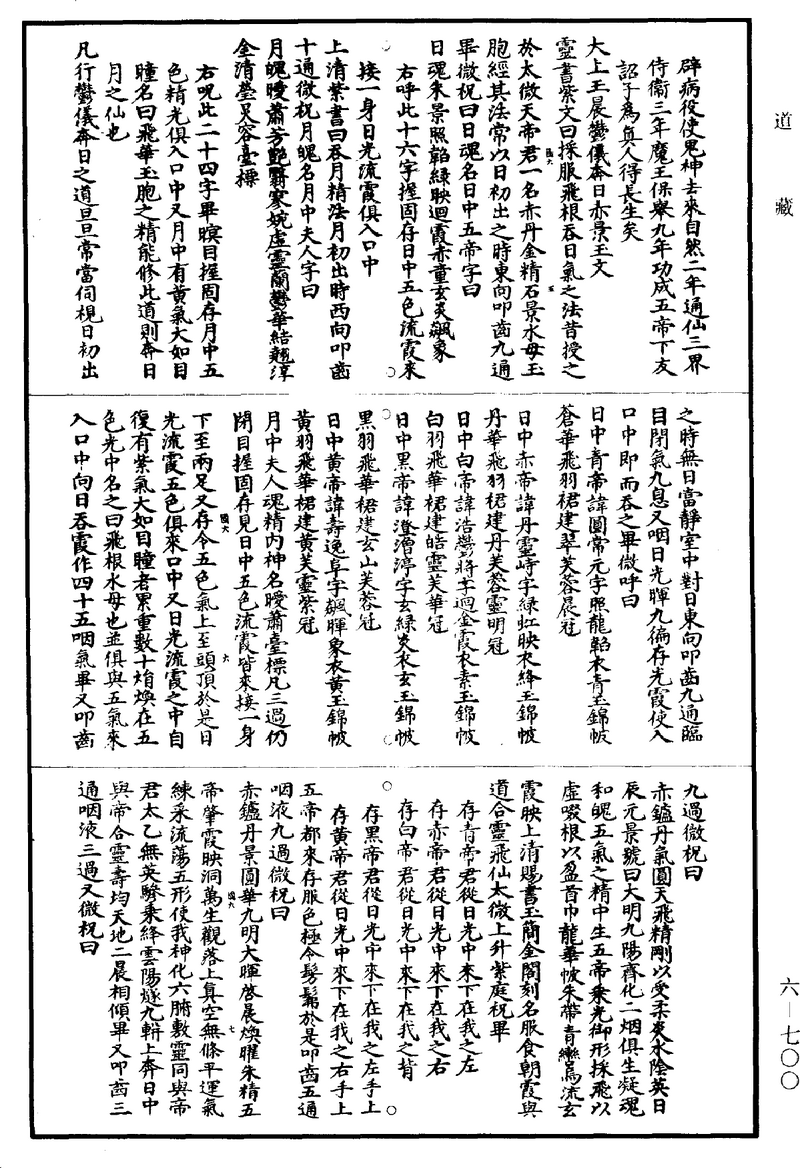 道藏
辟病役使鬼神去來自然二年通仙三界
侍衛三年魔王保舉九年功成五帝下友
詔子為真人得長生矣
大上玉晨鬱儀奔日赤景玉文
靈書紫文曰採服飛根吞日氣之法昔授之
於太微天帝君一名赤丹金精石景水母玉
胞經其法常以日初出之時東向叩齒九通
畢微祝曰日魂名日中五帝字曰
日魂朱景照韜綠映迴霞赤童玄炎飇象
右呼此十六字握固存日中五色流霞來
接一身日光流霞俱入口中
上清紫書曰吞月精法月初出時西向叩齒
十通微祝月魄名月中夫人字曰
月魄曖蕭芬艷翳寥婉虛靈蘭鬱華結翹淳
金清瑩炅容臺標
右呪此二十四字畢瞑目握固存月中五
色精光俱入口中又月中有黃氣大如目
瞳名曰飛華玉胞之精能修此道則奔日
月之仙也
凡行鬱儀奔日之道旦旦常當伺視日初出
之時無日當靜室中對日東向叩齒九通臨
目閉氣九息又咽日光暉九徧存光霞使入
口中即而吞之畢微呼曰
日中青帝諱圓常元字照龍韜衣青玉錦帔
蒼華飛羽裙建翠芙蓉晨冠
日中赤帝諱丹靈峙字綠虹映衣絳玉錦帔
丹華飛羽裙建丹芙蓉靈明冠
日中白帝諱浩鬱將字迴金霞衣素玉錦帔
白羽飛華裙建皓靈芙華冠
日中黑帝諱澄潧渟字玄綠炎衣玄玉錦帔
黑羽飛華裙建玄山芙蓉冠
日中黃帝諱壽逸阜字飇暉象衣黃玉錦帔
黃羽飛華裙建黃芙靈紫冠
月中夫人魂精內神名曖蕭臺標凡三過仍
閉目握固存見日中五色流霞皆來接一身
下至兩足又存令五色氣上至頭頂於是日
光流霞五色俱來口中又日光流霞之中自
復有紫氣大如目瞳者累重數十焰煥在五
色光中名之曰飛根水母也並俱與五氣來
入口中向日吞霞作四十五咽氣畢又叩齒
九過微祝曰
赤鑪丹氣圓天飛精剛以受柔炎水陰英日
辰元景號曰大明九陽齊化二烟俱生凝魂
和魄五氣之精中生五帝乘光御形採飛以
虛啜根以盈首巾龍華帔朱帶青轡烏流玄
霞映上清賜書玉簡金閣刻名服食朝霞與
道合靈飛仙太微上升紫庭祝畢
存青帝君從日光中來下在我之左
存赤帝君從日光中來下在我之右
存白帝君從日光中來下在我之背
存黑帝君從日光中來下在我之左手上
存黃帝君從日光中來下在我之右手上
五帝都來存服色極令髣髴於是叩齒五通
咽液九過微祝曰
赤鑪丹景圓華九明大暉啓晨煥曜朱精五
帝肇霞映洞萬生觀落上真空無條平運氣
練采流蕩五形使我神化六腑敷靈同與帝
君太乙無英驂乘絳雲陽燧九軿上奔日中
與帝合靈壽均天地二晨相傾畢又叩齒三
通咽液三過又微祝曰
六—七〇〇